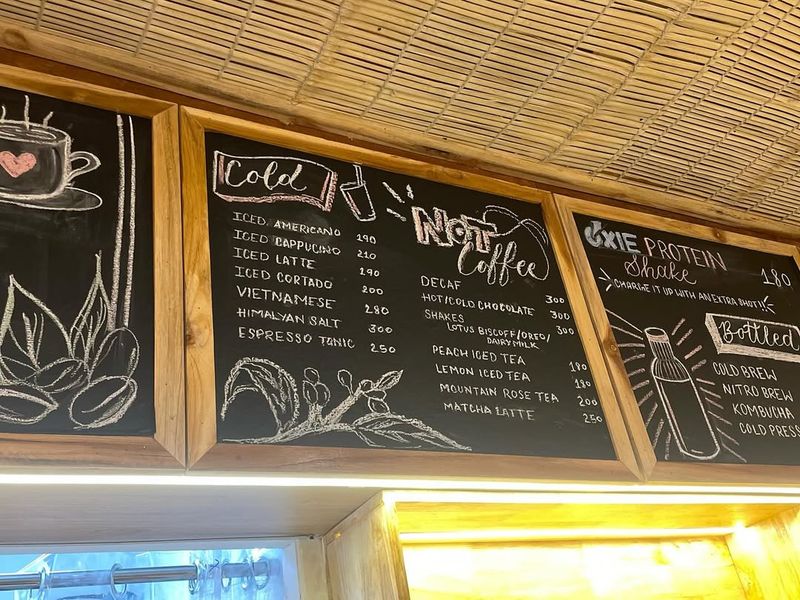 Cold
ICED AMERICANO 190
ICED CAPPUCINO 210
ICED LATTE 190
ICED CORTADO 200
VIETNAMESE 280
HIMALYAN SALT 300
ESPRESSO TONIC 250
NOT
Coffee
DECAF
HOT/COLD CHOCOLATE 300
SHAKES 300
LOTUS BISCOFF/OREO/
DAIRYMILK
PEACH ICED TEA 180
LEMON ICED TEA 180
MOUNTAIN ROSE TEA 200
MATCHA LATTE 250
OXIE PROTEIN
Shake 180
CHARGE IT UP WITH AN EXTRA SHOT!!
Bottled
COLD BREW
NITRO BREW
KOMBUCHA
COLD PRESS